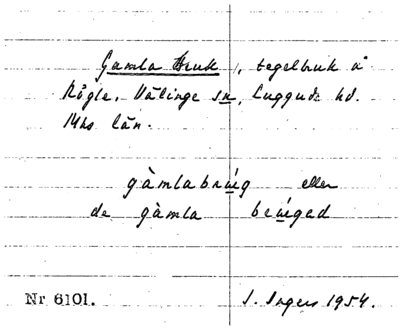 Gamla Bruk, tegelbruk å
Rögle, Välinge sn, Luggude hd.
Mhs län.
gàmlabrúg eller
de gàmla brúged
Nr 6101.
I. Ingers 1954.